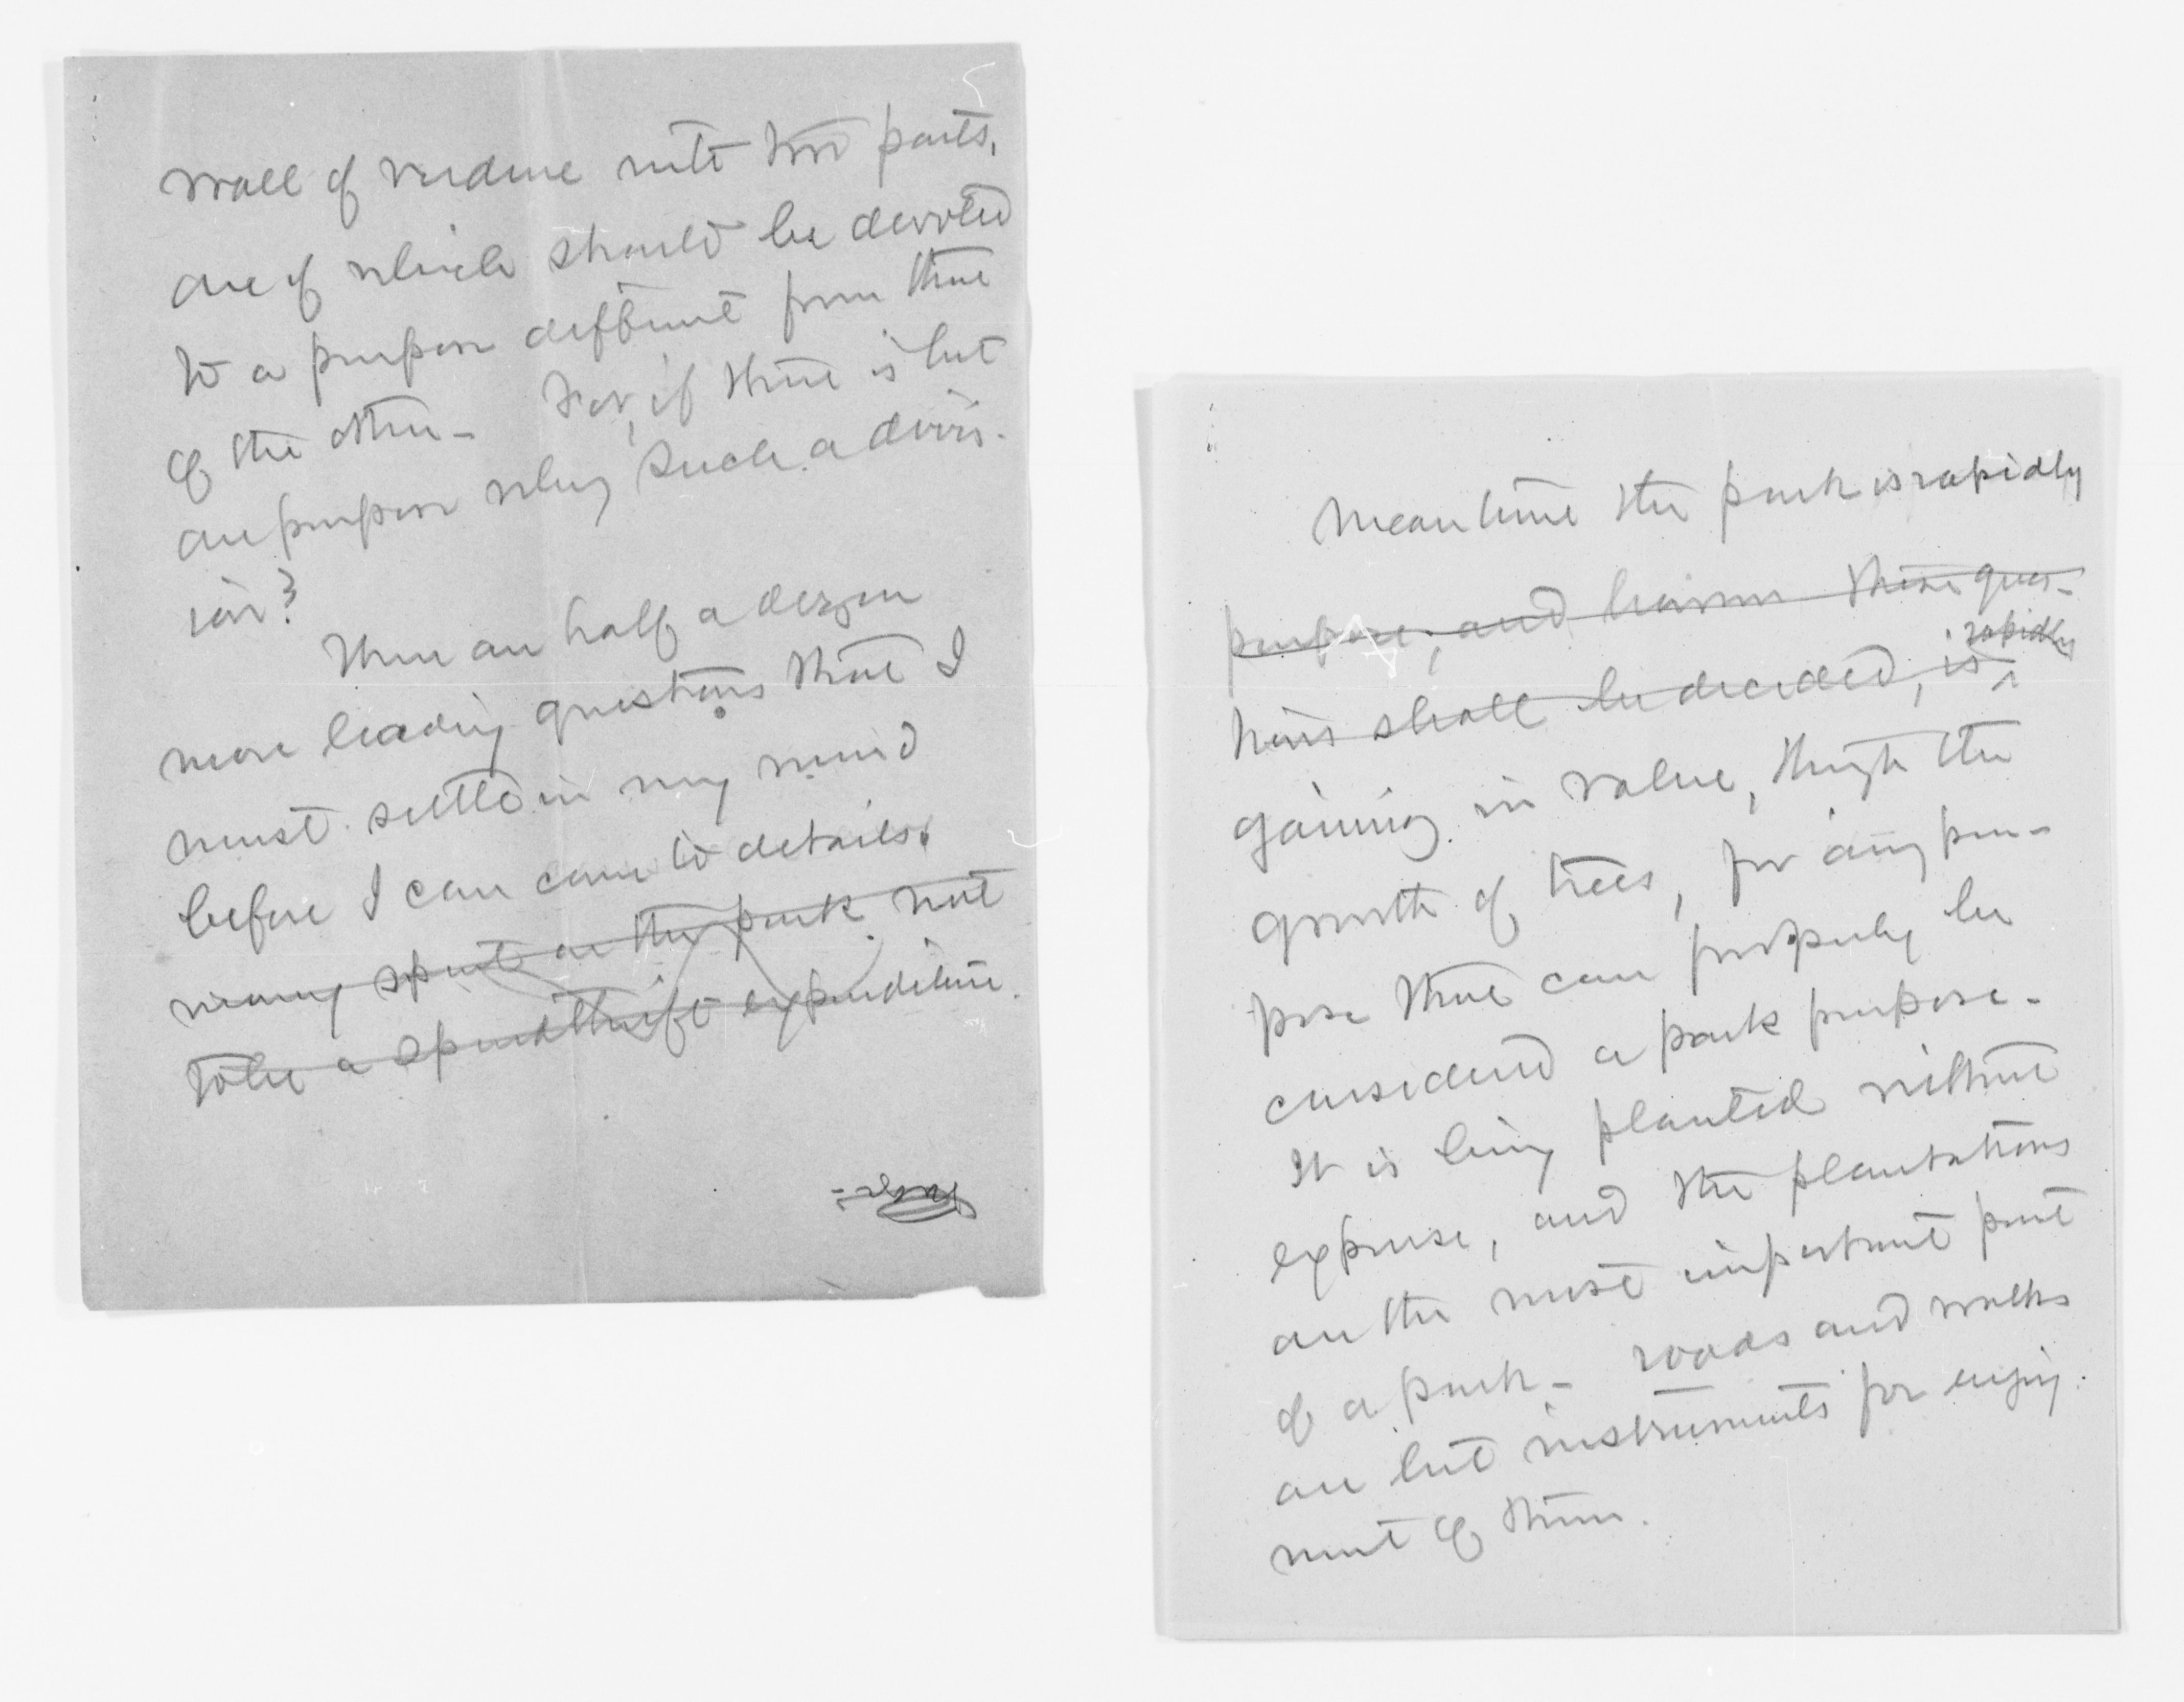 wall of verdure into two parts,
one of which should be devoted
to a purpose different from that
of the other— For, if there is but
one purpose why such a divis-
ion?
There are half a dozen
more leading questions that I
must settle in my mind
before I can come to details.
money spent on the park not
to be a spendthrift expenditure.
Meantime the park is rapidly
purpose; and these ques-
rapidly
tions shall be decided, is ^
gaining in value, through the
growth of trees, for any pur-
pose that can properly be
considered a park purpose—
It is being planted without
expense, and the plantations
are the most important part
of a park— roads and walks
are but instruments for enjoy-
ment of them.